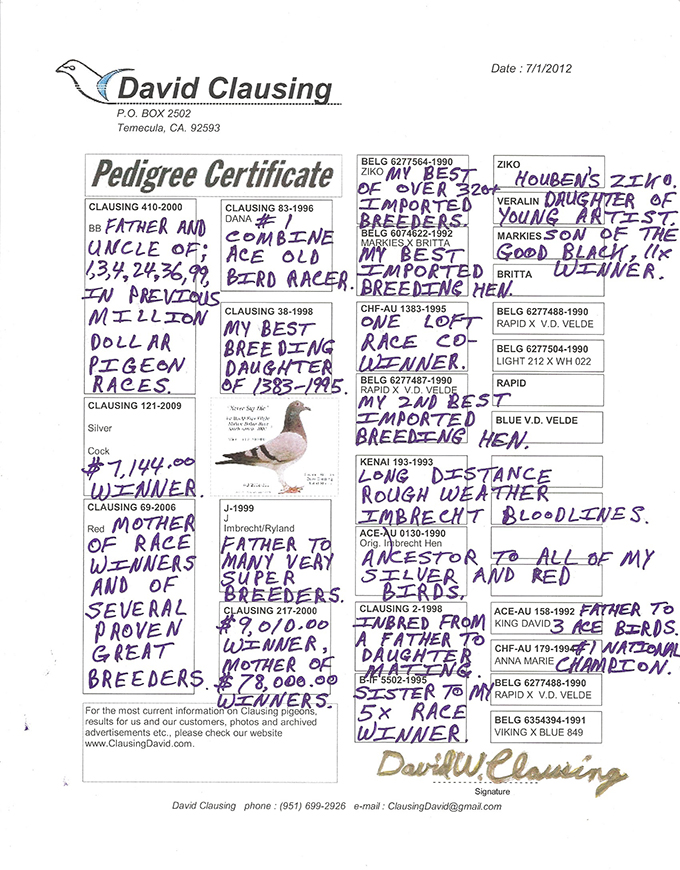 David Clausing
P.O. BOX 2502
Temecula, CA. 92593
Date : 7/1/2012
Pedigree Certificate
CLAUSING 410-2000
BB FATHER AND
UNCLE OF;
1,3,4,24,36,99,
IN PREVIOUS
MILLION
DOLLAR
PIGEON
RACES.
CLAUSING 121-2009
Silver
Cock
$7,144.00
WINNER.
CLAUSING 69-2006
Red MOTHER
OF RACE
WINNERS
AND OF
SEVERAL
PROVEN
GREAT
BREEDERS.
CLAUSING 83-1996
DANA #1
COMBINE
ACE OLD
BIRD RACER.
CLAUSING 38-1998
MY BEST
BREEDING
DAUGHTER
OF 1383-1995.
"Never Say Die"
J-1999
J
Imbrecht/Ryland
FATHER TO
MANY VERY
SUPER
BREEDERS.
CLAUSING 217-2000
$9,010.00
WINNER,
MOTHER OF
$78,000.00
WINNERS.
BELG 6277564-1990
ZIKO MY BEST
OF OVER 320+
IMPORTED
BREEDERS.
BELG 6074622-1992
MARKIES X BRITTA
MY BEST
IMPORTED
BREEDING HEN.
CHF-AU 1383-1995
ONE LOFT
RACE CO-
WINNER.
BELG 6277487-1990
RAPID X V.D. VELDE
MY 2ND BEST
IMPORTED
BREEDING HEN.
KENAI 193-1993
LONG DISTANCE
ROUGH WEATHER
IMBRECHT BLOODLINES.
ACE-AU 0130-1990
Orig. Imbrecht Hen
ANCESTOR TO ALL OF MY
SILVER AND RED
BIRDS.
CLAUSING 2-1998
INBRED FROM
A FATHER TO
DAUGHTER
MATING.
B-IF 5502-1995
SISTER TO MY
5X RACE
WINNER.
ZIKO
HOUBEN'S ZIKO.
VERALIN DAUGHTER OF
YOUNG ARTIST.
MARKIES SON OF THE
GOOD BLACK, 11X
BRITTA WINNER.
BELG 6277488-1990
RAPID X V.D. VELDE
BELG 6277504-1990
LIGHT 212 X WH 022
RAPID
BLUE V.D. VELDE
ACE-AU 158-1992 FATHER TO
KING DAVID 3 ACE BIRDS.
CHF-AU 179-1994 #1 NATIONAL
ANNA MARIE CHAMPION.
BELG 6277488-1990
RAPID X V.D. VELDE
BELG 6354394-1991
VIKING X BLUE 849
For the most current information on Clausing pigeons,
results for us and our customers, photos and archived
advertisements etc., please check our website
www.ClausingDavid.com.
David W. Clausing
Signature
David Clausing phone : (951) 699-2926 e-mail : ClausingDavid@gmail.com